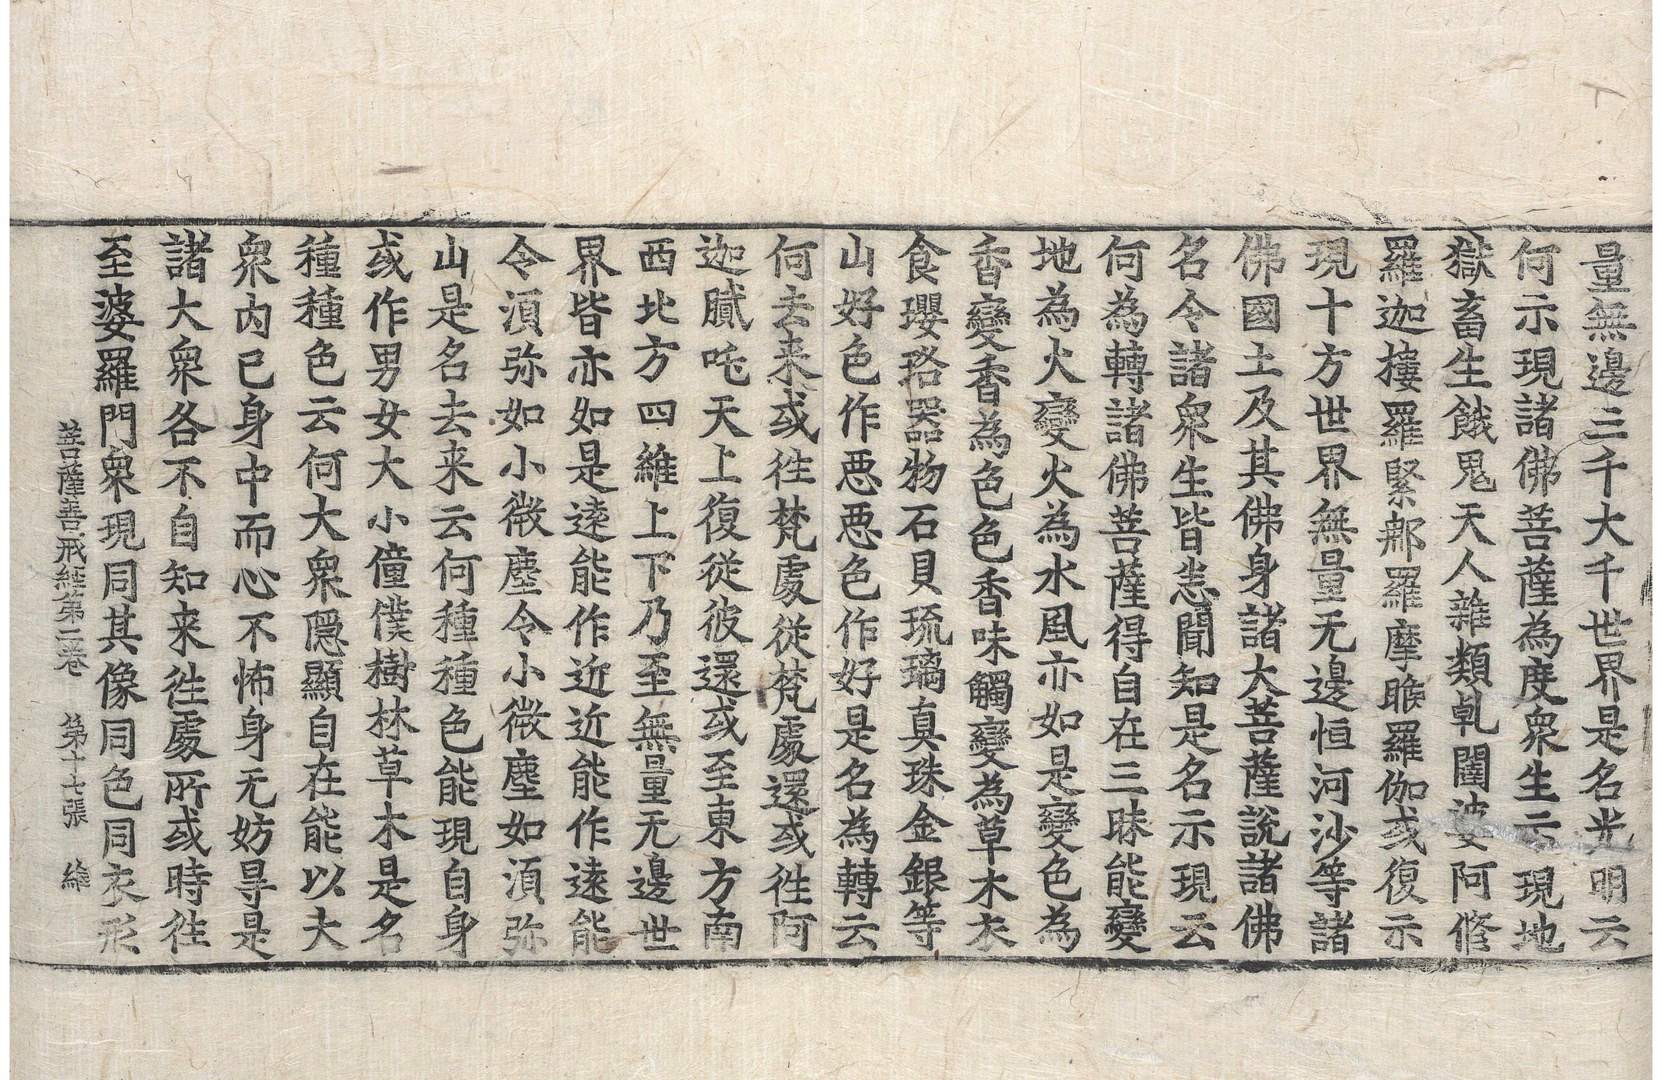 量無邊三千大千世界是名光明云
何示現諸佛菩薩為度衆生示現地
獄畜生餓鬼天人雜類乹闥婆阿修
羅迦樓羅緊那羅摩睺羅伽或復示
現十方世界無量无邊恒河沙等諸
佛國土及其佛身諸大菩薩說諸佛
名令諸衆生皆悉聞知是名示現云
何為轉諸佛菩薩得自在三昧能變
地為火變火為水風亦如是變色為
香變香為色色香味觸變為草木衣
食瓔珞器物石貝琉璃真珠金銀等
山好色作惡惡色作好是名為轉云
何去来或往梵處從梵處還或往阿
迦膩吒天上復從彼還或至東方南
西北方四維上下乃至無量无邊世
界皆亦如是遠能作近近能作遠能
令湏弥如小微塵令小微塵如湏弥
山是名去来云何種種色能現自身
或作男女大小僮僕樹林草木是名
種種色云何大衆隱顯自在能以大
衆內已身中而心不怖身无妨㝵是
諸大衆各不自知来往處所或時往
至婆羅門衆現同其像同色同衣形
菩薩善戒經第二卷 第十七張 絲